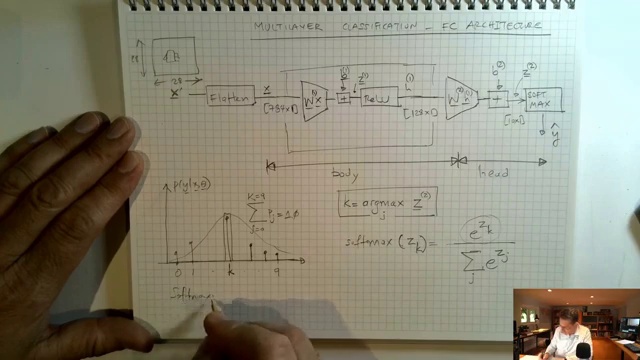 MULTILAYER CLASSIFICATION - FC ARCHITECTURE
28
28
X
Flatten
x
[784x1]
W(1) x
b(1)
+
z(1)
ReLU
h(1)
[128x1]
W(2) h(1)
b(2)
+
z(2)
[10x1]
SOFT MAX
ŷ
body
head
P(y|x,θ)
K=9
∑ Pj = 1.0
j=0
0 1 k 9
k = argmax z(2)
j
softmax (zk) = e^zk / ∑j e^zj
Softmax